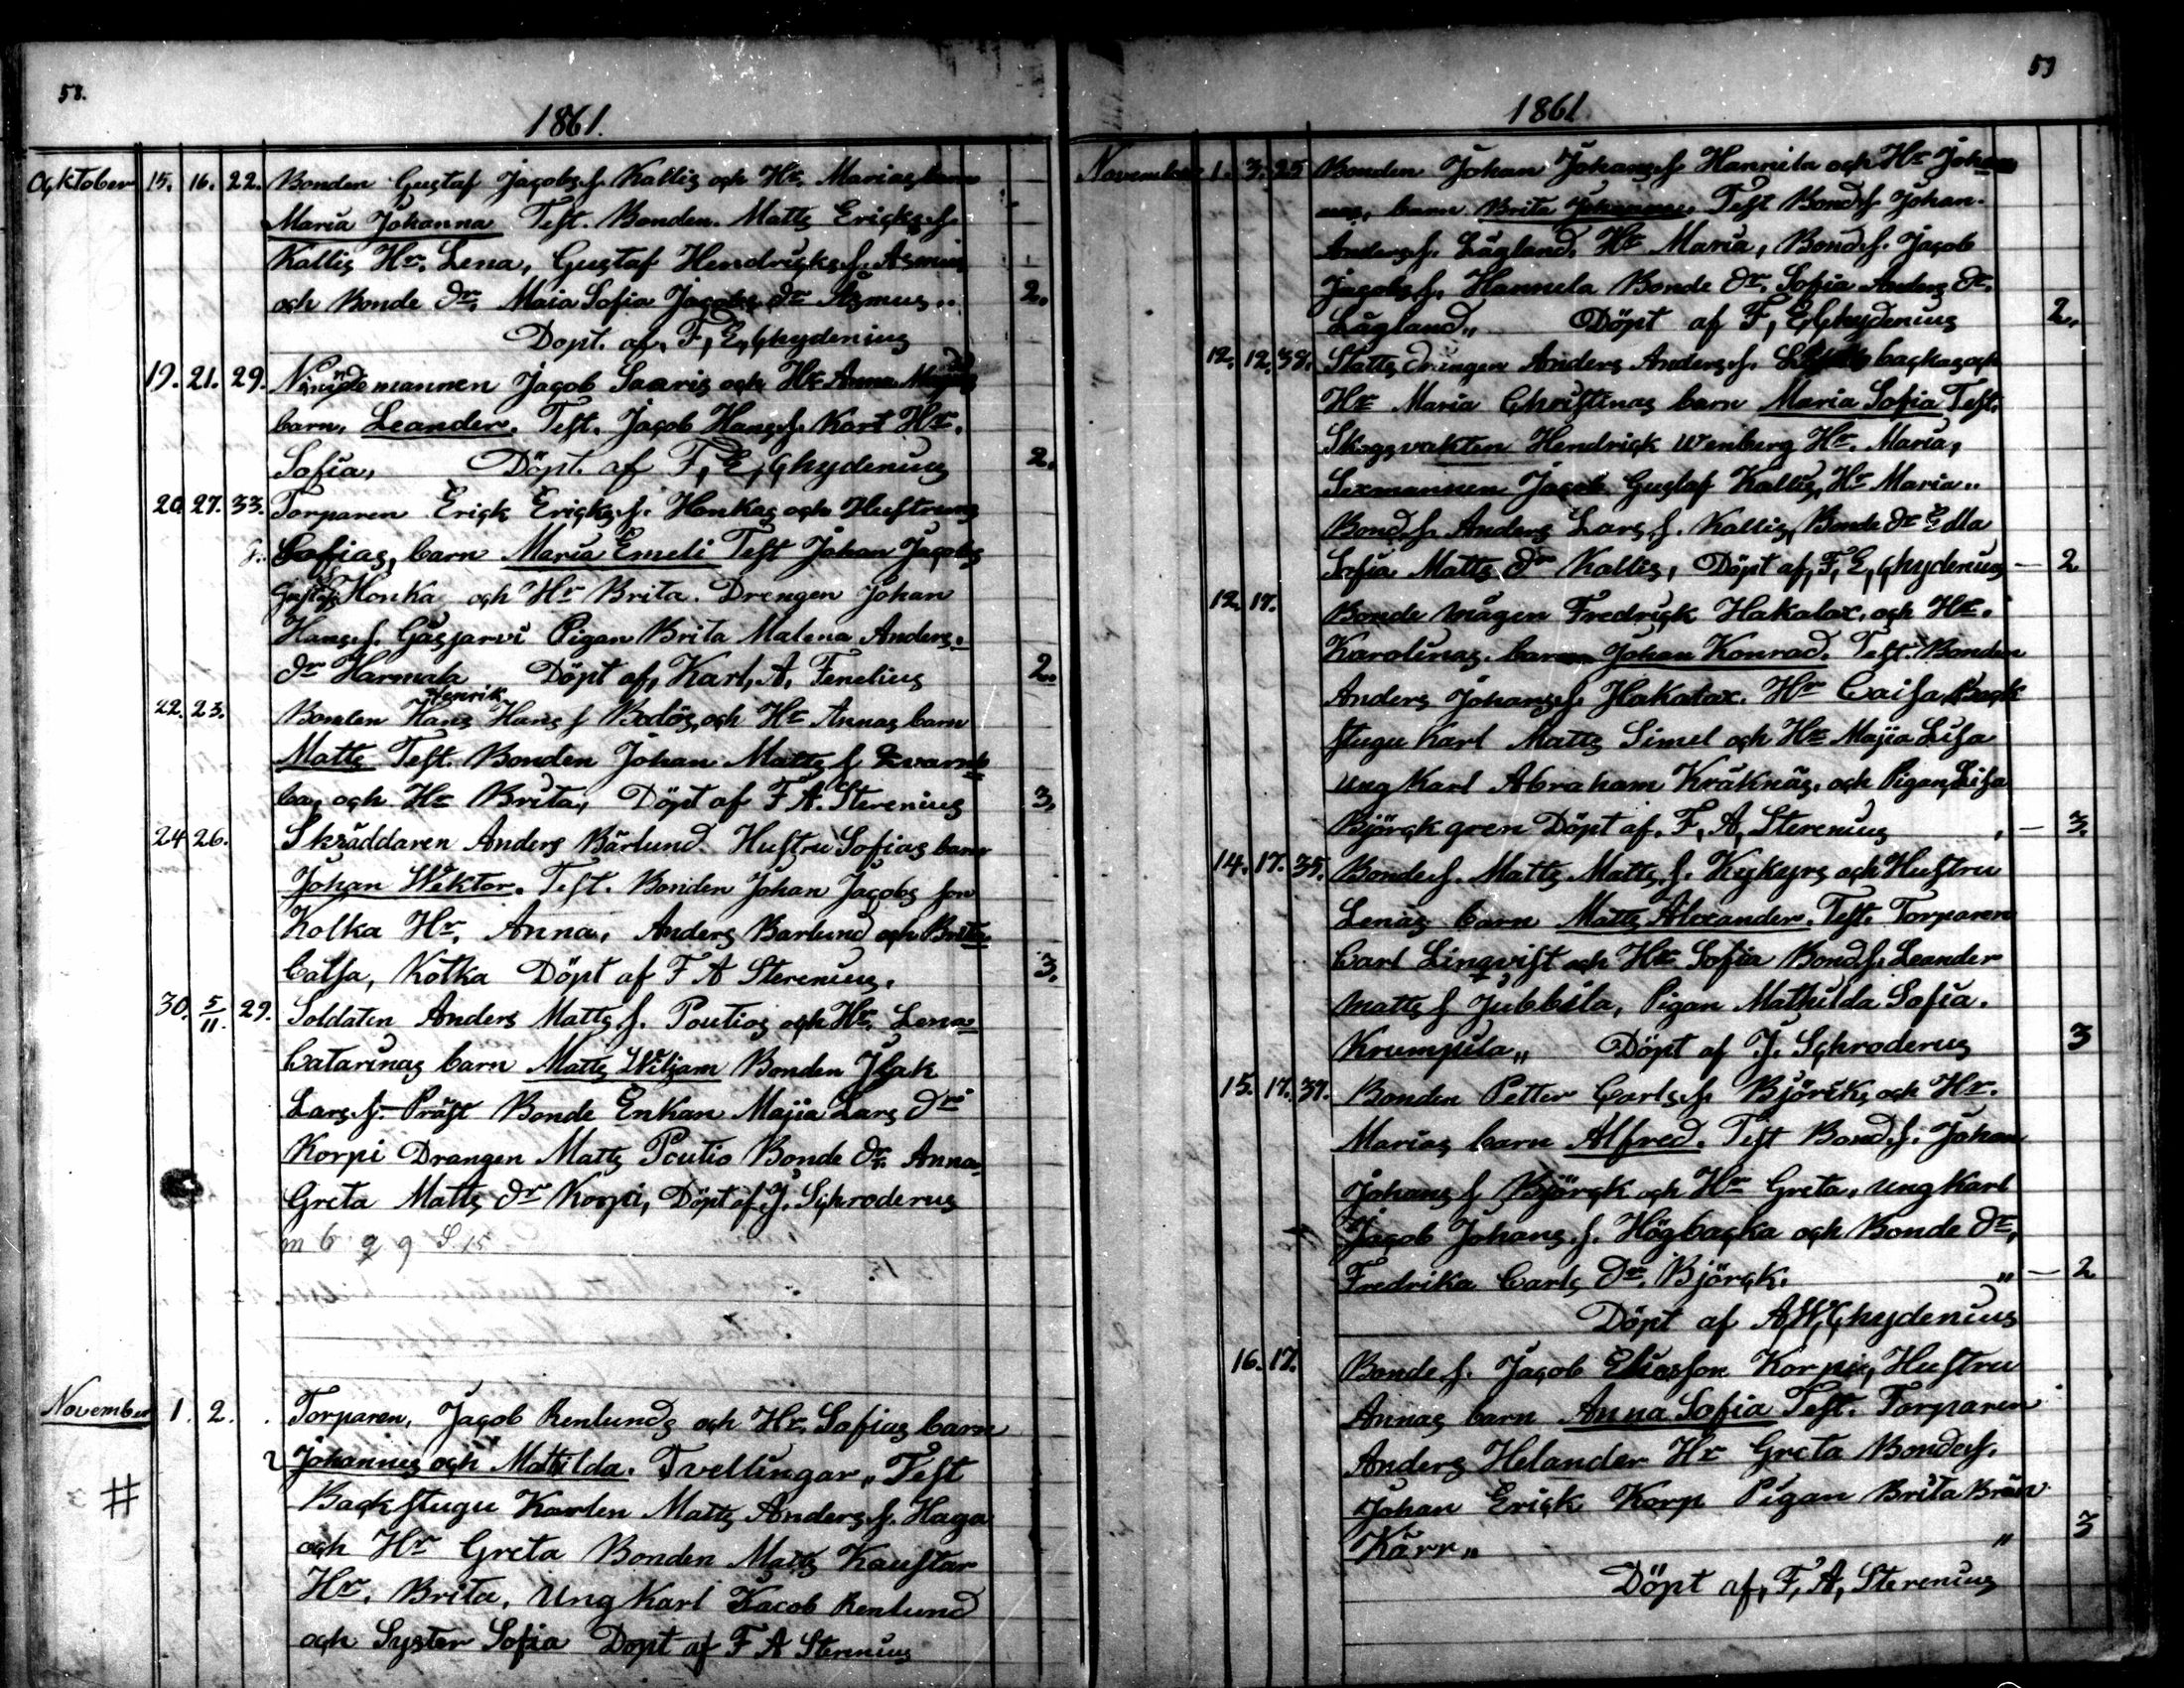 58.
1861.
Ocktober 15. 16. 22. Bonden Gustaf Jacobs s. Kallis och Hr. Marias barn
Maria Johanna Test. Bonden. Matts Ericks s.
Kallis Hr. Lena, Gustaf Hendricks s. Asmus
och Bonde dr. Maia Sofia Jacobs dr Asmus.. 2.
Döpt. af, F, E, Chydenius
19. 21. 29. Nämdemannen Jacob Saaris och Hr Anna
barn, Leander. Test. Jacob Hans s. Kart Hr.
Sofia, Döpt. af F, E, Chydenius 2.
20 27. 33. Torparen Erick Ericks s. Honkas och Hustrus
Sofias, barn Maria Emeli Test Johan Jacobs
Gustafs Honka och Hr Brita. Drengen Johan
Hans s. Gåsjarvi Pigan Brita Malena Anders
dr Harmala Döpt af, Karl, A, Fenelius 2..
22. 23. Bonden Hans Henrik Hans s Bodös, och Hr Annas barn
Matts Test. Bonden Johan Matts s Qvarn
ba, och Hr Brita, Döpt af F A. Sterenius 3.
24 26. Skräddaren Anders Bärlund Hustru Sofias barn
Johan Wiktor. Test. Bonden Johan Jacobs son
Kolka Hr. Anna, Anders Barlund och Brita
Caisa, Kotka Döpt af F A Sterenius. 3.
30. 5/11. 29. Soldaten Anders Matts s. Poutios och Hr. Lena
Catarinas barn Matts Wiljam Bonden Isak
Lars s. Präst Bonde Enkan Majia Lars dr
Korpi Drangen Matts Poutio Bonde dr. Anna
Greta Matts dr Korpi, Döpt af J. Schroderus
m 6 q 9 S 15
November 1. 2. Torparen, Jacob Renlunds och Hr. Sofias barn
2 Johannes och Mathilda. Tvellingar,, Test
# Backstugu Karlen Matts Anders s. Haga
och Hr Greta Bonden Matts Kaustar
Hr. Brita, Ung Karl Kacob Renlund
och Syster Sofia Dopt af F A Sterenius
59
1861
November 1. 3. 25 Bonden Johan Johans s Hannila och Hr Johan
nas, barn Brita Johanna. Test Bonds s Johan.
Anders s. Lågland, Hr Maria, Bond s. Jacob
Jacobs s. Hannula Bonde dr. Sofia Anders dr.
Lågland,, Döpt af F, E, Chydenius 2.
12. 12. 38. Statts drängen Anders Anders s. backas och
Hr Maria Christinas barn Maria Sofia Test.
Skogsvakten Hendrick Wenberg Hr. Maria,
Sexmannen Jacob Gustaf Kallis, Hr Maria..
Bond s. Anders Lars s. Kallis, Bonde dr Edla
Sofia Matts dr Kallis, Döpt af, F, E, Chydenius — 2
12. 17. Bonde mågen Fredrick Hakalax, och Hr.
Karolinas. barn Johan Konrad. Test. Bonden
Anders Johans s. Hakalax. Hr Caisa, Back
stugu Karl Matts Simel och Hr Majia Lisa
Ung Karl Abraham Kråknäs, och Pigan, Lisa
Björckgren Döpt af. F, A, Sterenius — 3.
14. 17. 35. Bonde s. Matts Matts s. Kykyrs och Hustru
Lenas barn Matts Alexander. Test. Torparen
Carl Linqvist och Hr Sofia Bond s. Leander
Matts s Jubbila, Pigan Mathilda Sofia.
Krumpula,, Döpt af J. Schroderus 3
15. 17. 37. Bonden Petter Carls s. Björck, och Hr.
Marias barn Alfred. Test Bond s. Johan
Johans s Björck och Hr Greta, Ung Karl
Jacob Johans s. Högbacka och Bonde dr,
Fredrika Carls dr, Björck. ,, — 2
Döpt af A, W, Chydenius
16. 17. Bonde s. Jacob Eliasson Korpis, Hustru
Annas barn Anna Sofia Test. Torparen
Anders Helander Hr Greta Bonde s.
Johan Erick Korp Pigan Brita Brän
Kärr,, ,, 3
Döpt af, F, A, Sterenius